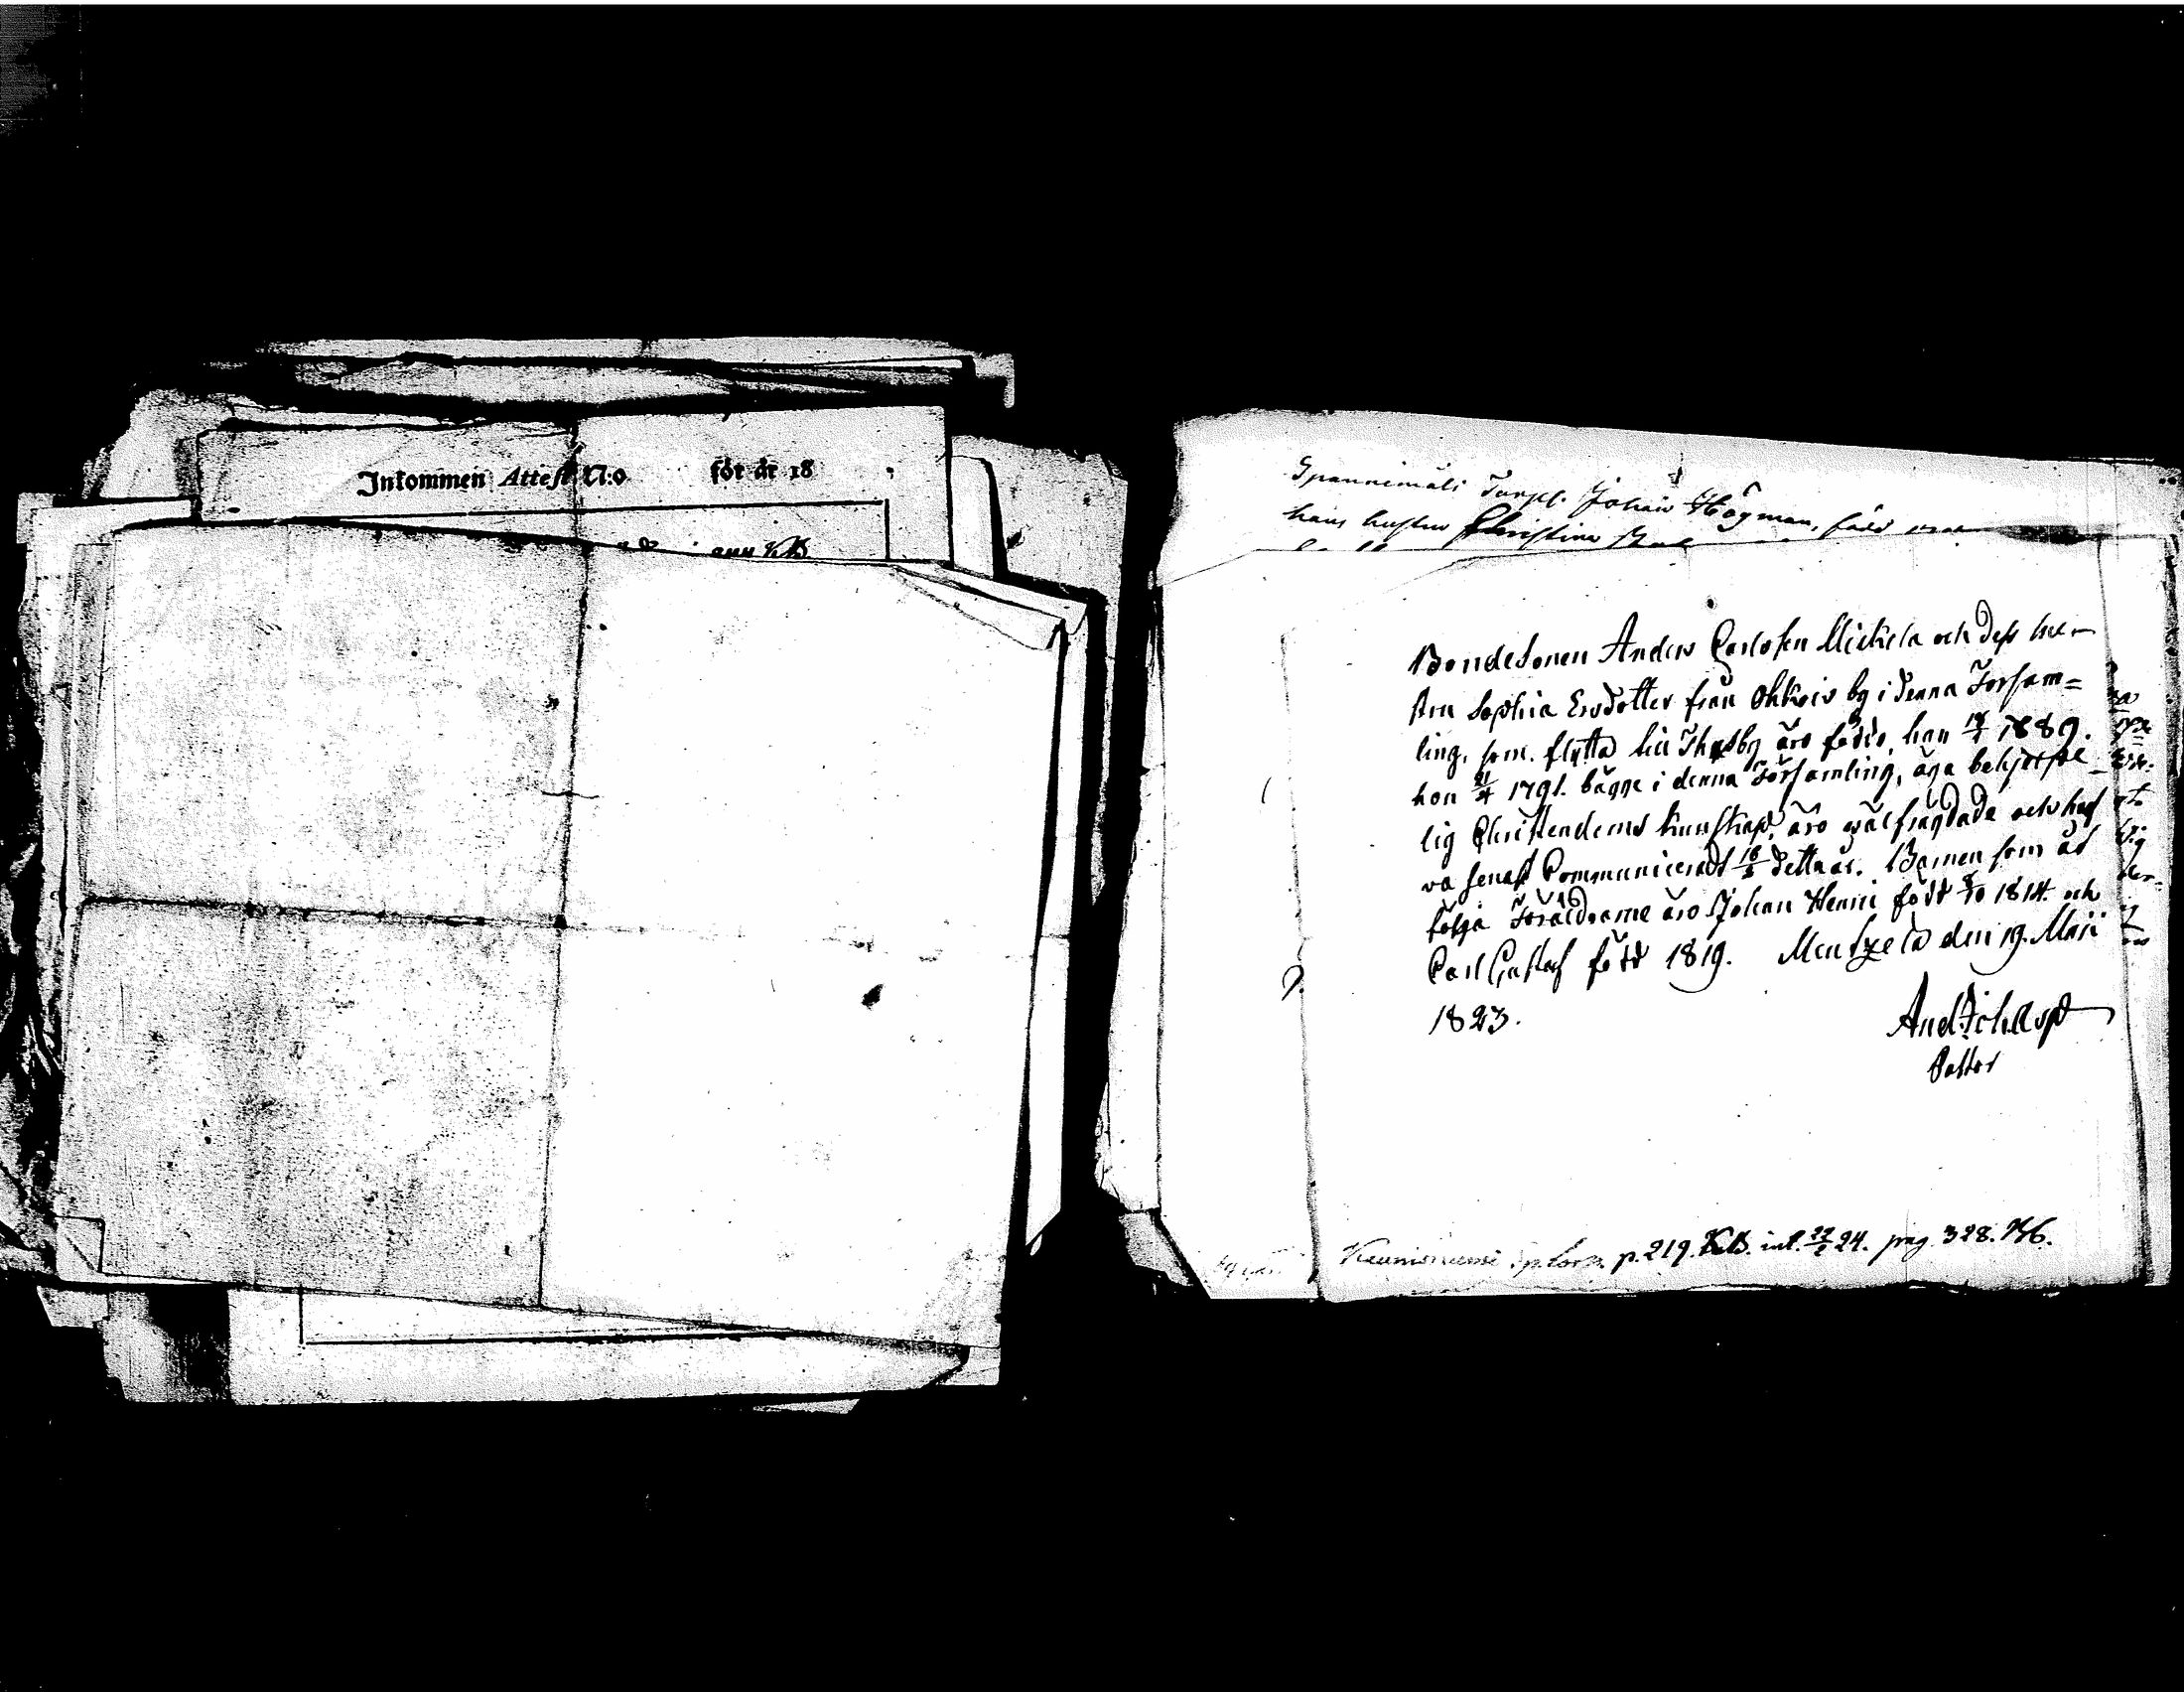 Inkommen Attest N:o för år 18
Spannimäli Torp. Johan Högman, född
hans hustru Christina
Bondesonen Anders Carlsson Mickela och dess hu-
stru Sophia Ersdotter från Ohkois by i denna Försam=
ling, som flytta till Thusby äro födde, han 1789.
hon 21/4 1791. bägge i denna Församling, äga behjelpe-
lig Christendoms kunskap, äro wälfrägdade och haf
va senast Communicerat 16/3 detta år. Barnen som åt
följa Föräldrarne äro Johan Henric född 8/10 1814. och
Carl Gustaf född 1819. Mentzelä den 19. Maii
1823.
Pastor
p. 219. K.B. inl. 22/2 24. pag. 328.